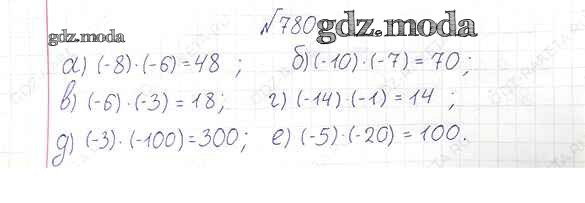 №780 gdz.moda
gdz.moda
а) (-8)·(-6) = 48 ; б) (-10)·(-7) = 70 ;
в) (-6)·(-3) = 18 ; г) (-14)·(-1) = 14 ;
д) (-3)·(-100) = 300 ; е) (-5)·(-20) = 100.